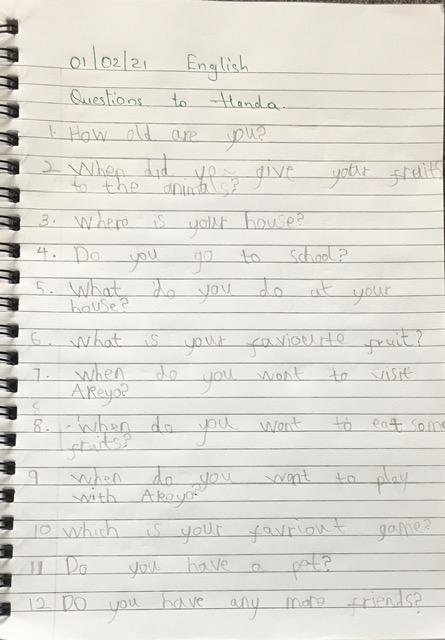 01/02/21 English
Questions to Handa.
1. How old are you?
2 When did yo give your fruits
to the animals?
3. Where is your house?
4. Do you go to school?
5. What do you do at your
house?
6. What is your favioeurte fruit?
7. when do you want to visit
AKeyo?
8
8. When do you want to eat some
fruits?
9 when do you want to play
with AKoyo?
10 which is your favriout game?
11 Do you have a pet?
12 DO you have any more friends?